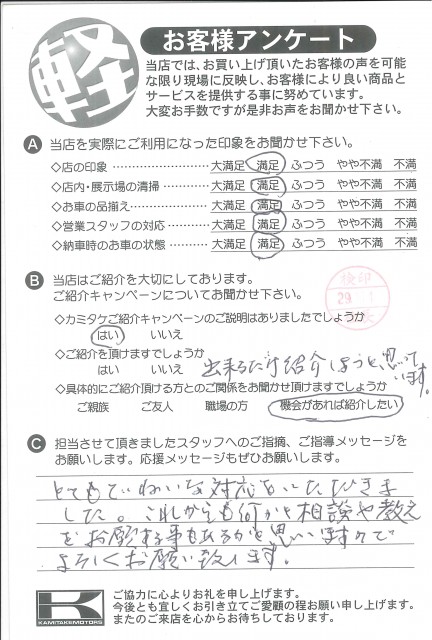 軽
お客様アンケート
当店では、お買い上げ頂いたお客様の声を可能
な限り現場に反映し、お客様により良い商品と
サービスを提供する事に努めています。
大変お手数ですが是非お声をお聞かせ下さい。
A 当店を実際にご利用になった印象をお聞かせ下さい。
◇店の印象 ………………… 大満足 満足 ふつう やや不満 不満
◇店内・展示場の清掃 ………… 大満足 満足 ふつう やや不満 不満
◇お車の品揃え ……………… 大満足 満足 ふつう やや不満 不満
◇営業スタッフの対応 ………… 大満足 満足 ふつう やや不満 不満
◇納車時のお車の状態 ………… 大満足 満足 ふつう やや不満 不満
B 当店はご紹介を大切にしております。
ご紹介キャンペーンについてお聞かせ下さい。
検印
29.
◇カミタケご紹介キャンペーンのご説明はありましたでしょうか
はい いいえ
◇ご紹介を頂けますでしょうか
はい いいえ 出来るだけ紹介しようと思って
います。
◇具体的にご紹介頂ける方とのご関係をお聞かせ頂けますでしょうか
ご親族 ご友人 職場の方 機会があれば紹介したい
C 担当させて頂きましたスタッフへのご指摘、ご指導メッセージを
お願いします。応援メッセージもぜひお願いします。
とてもていねいな対応をいただきま
した。これからも何かと相談や教え
をお願する事もあるかと思いますので
よろしくお願い致します。
K
KAMITAKEMOTORS
ご協力に心よりお礼を申し上げます。
今後とも宜しくお引き立てご愛顧の程お願い申し上げます。
またのご来店を心からお待ちしております。